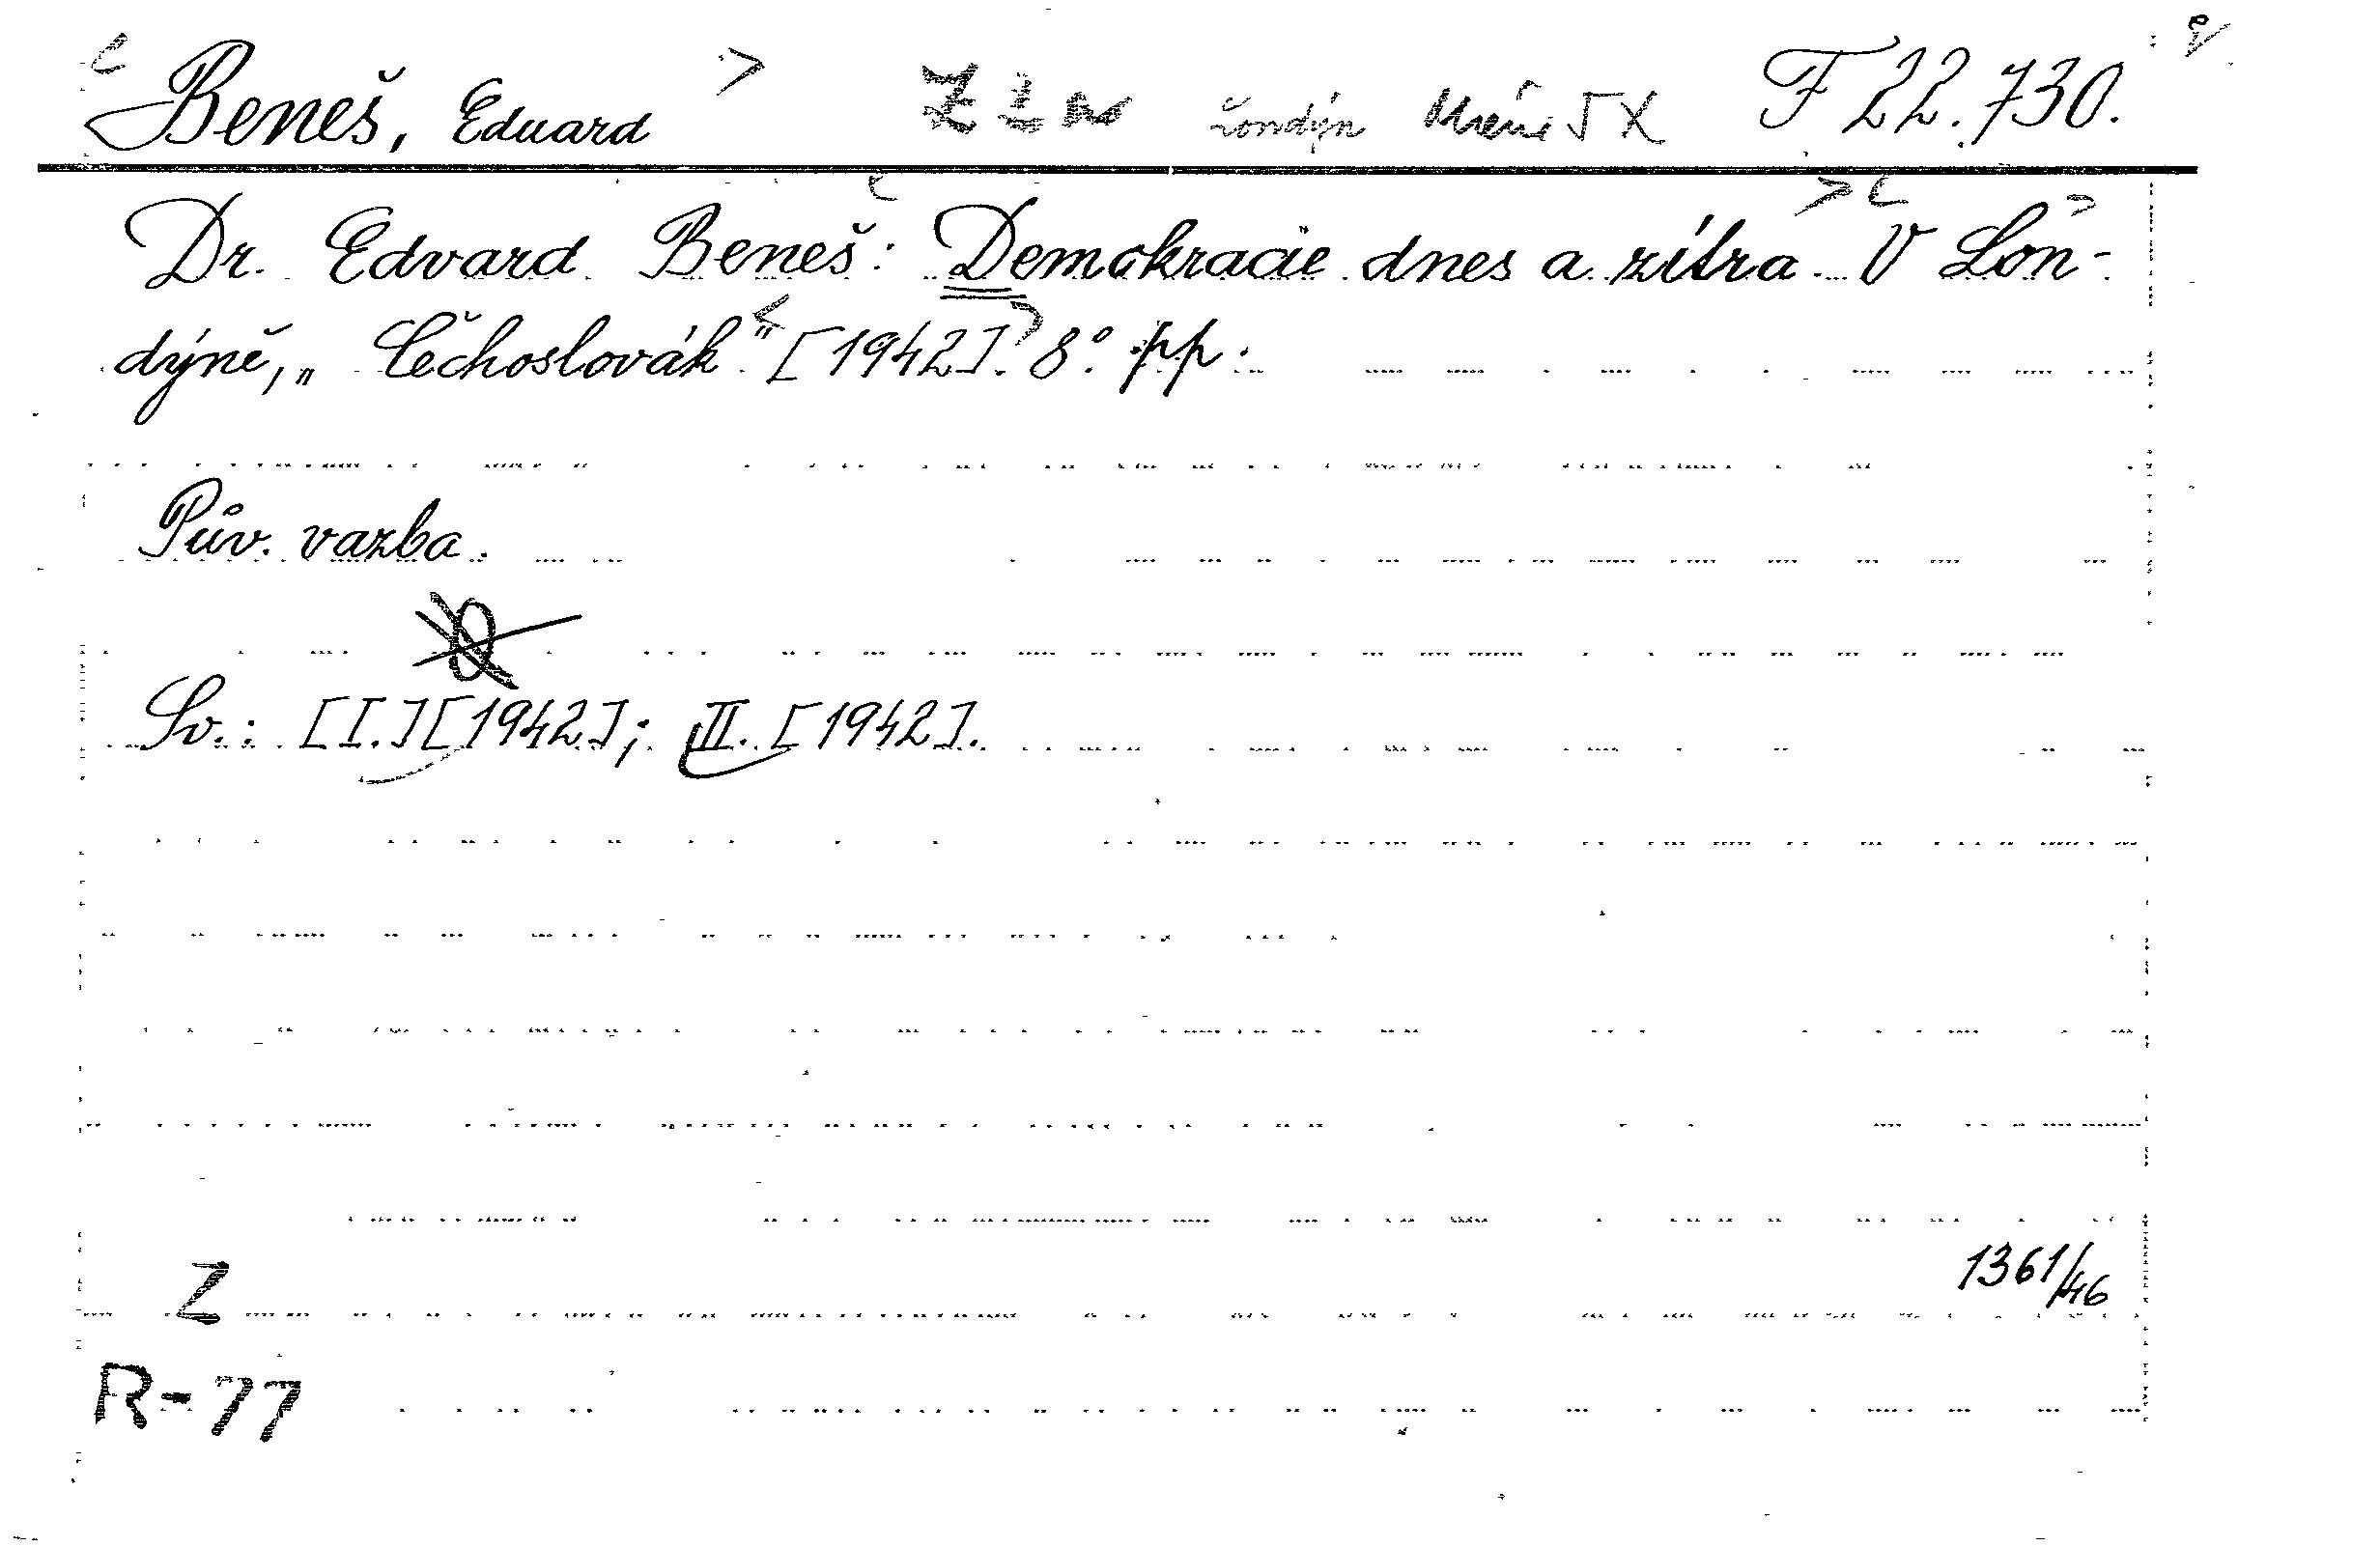 Beneš, Eduard Londýn F 22.730.
Dr. Edvard Beneš: Demokracie dnes a zítra. V Lon-
dýně, „Čechoslovák" [1942]. 8° pp.
Pův. vazba.
Sv.: [I.] [1942]; II. [1942].
Z
1361/46
R-77